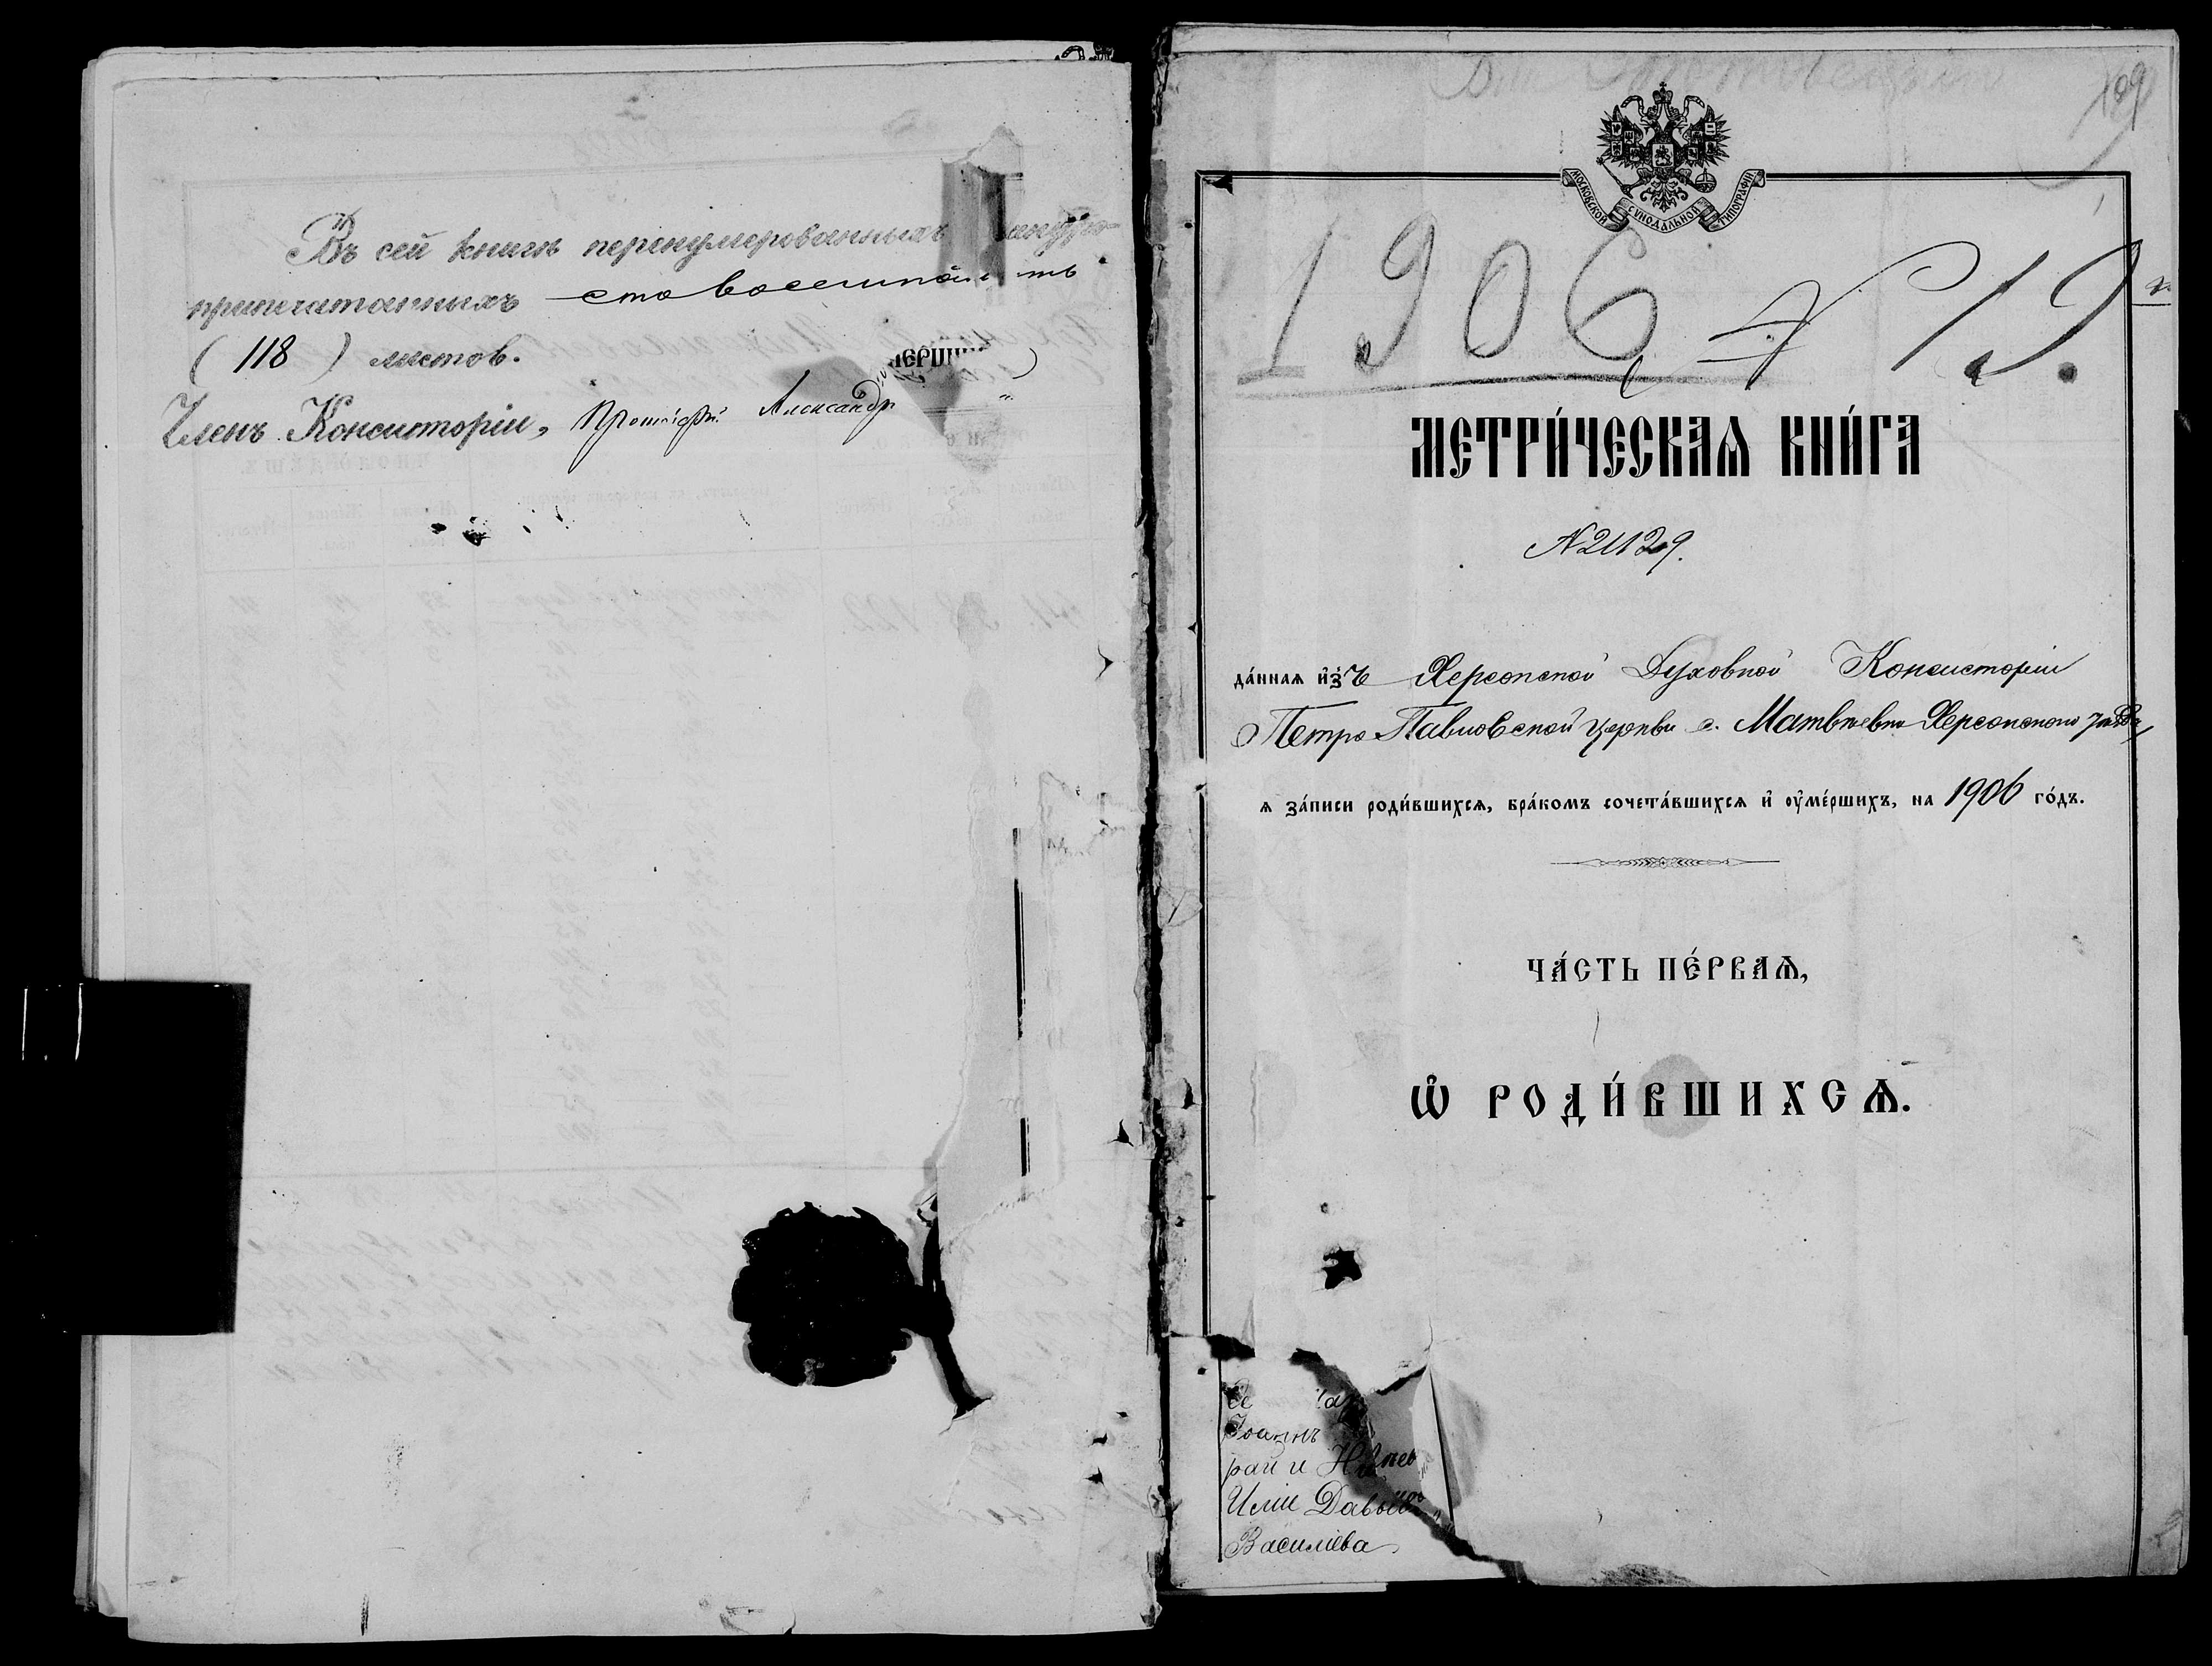 Въ сей книгѣ перенумерованныхъ
припечатанныхъ сто восемнад ть
( 118 ) листов.
Членъ Консисторіи, Протоіерей Александръ
109
МОСКОВСКОЙ СѴНОДАЛЬНОЙ ТИПОГРАФІИ
1906 № 19.
МЕТРИ́ЧЕСКАѦ КНИ́ГА
№ 21129.
да́ннаѧ и҆зъ Херсонской Духовной Консисторіи
Петро Павловской церкви с. Матвѣевки Херсонского уѣзда,
ѧ за́писи роди́вшихсѧ, бра́комъ сочета́вшихсѧ и҆ оу҆ме́ршихъ, на 1906 го́дъ.
ЧА́СТЬ ПЕ́РВАѦ,
Ѽ РОДИ́ВШИХСѦ.
Іоаннъ
рай и
Иліи Давыд
Василіева